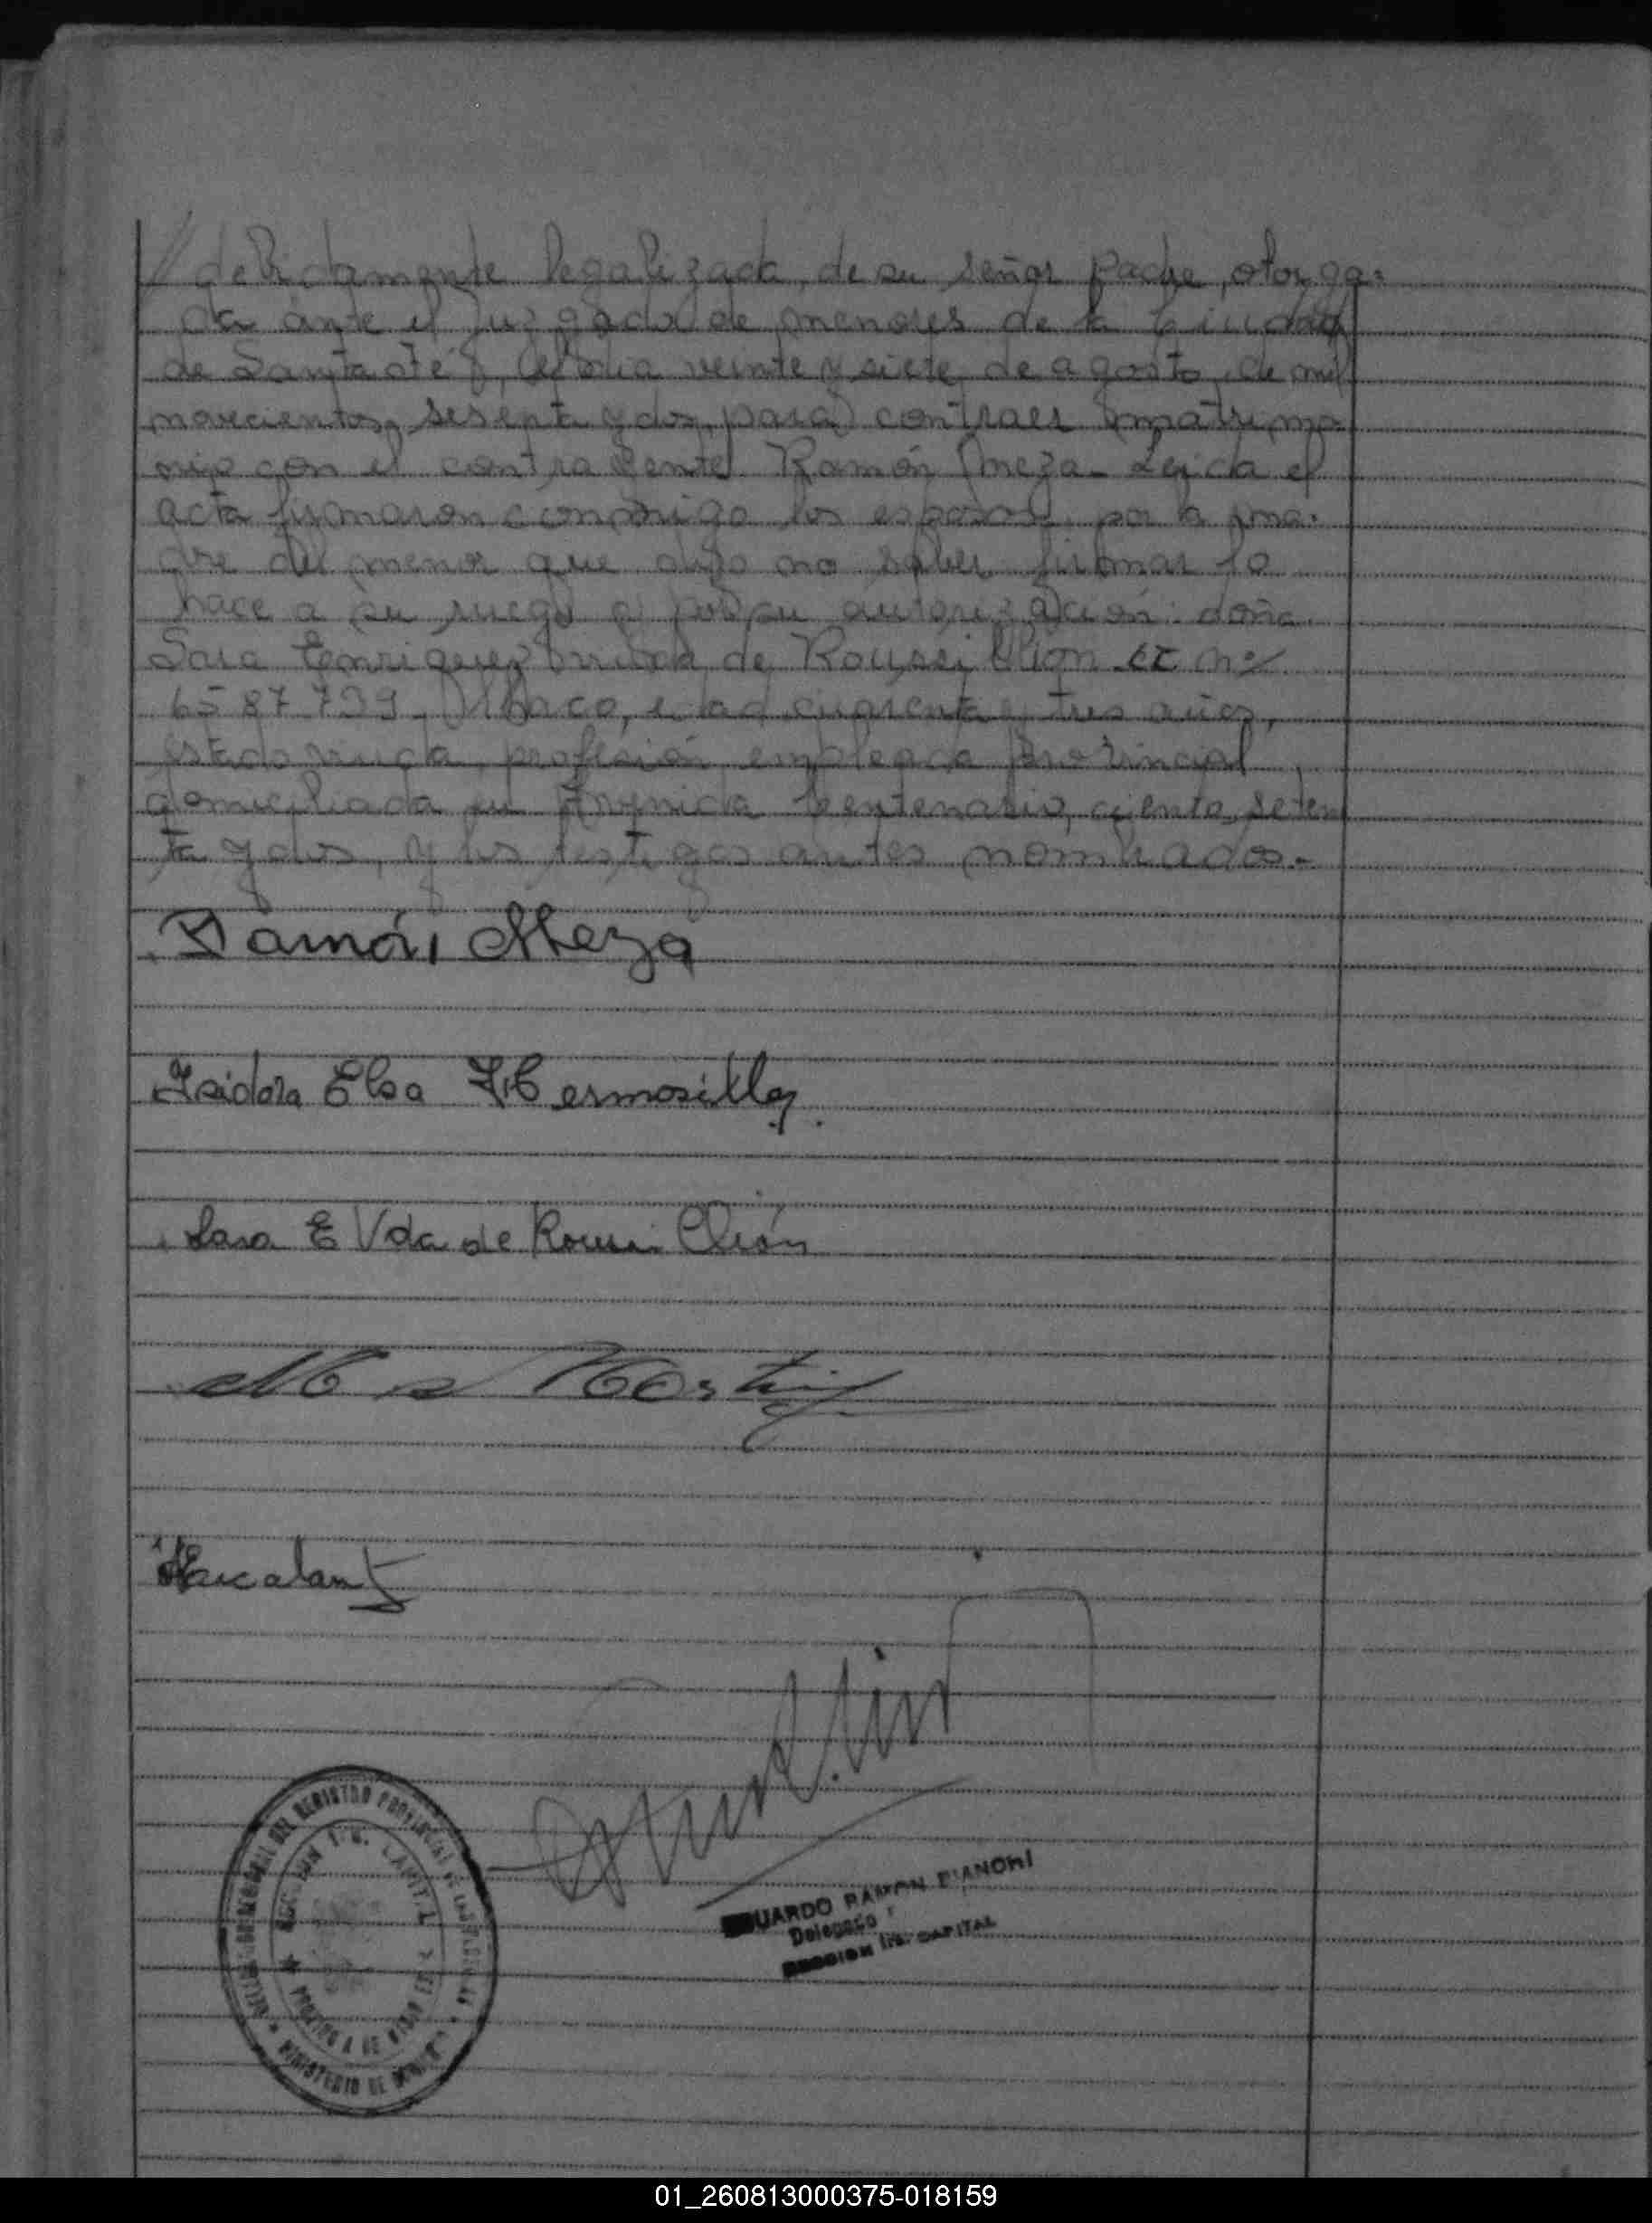 // debidamente legalizada, de su señor padre, otorga=
da ante el Juzgado de menores de la Ciudad
de Santa Fé, el día veinte y siete de agosto, de mil
novecientos sesenta y dos, para contraer matrimo-
nio con el contrayente Ramón Meza. Leida el
acta firmaron conmigo los esposos, por la ma-
dre del menor que dijo no saber firmar lo
hace a su ruego y por su autorización: doña
Sara Enriquez viuda de Roussillion
6587739, edad cuarenta y tres años,
estado viuda, profesión empleada Provincial,
domiciliada en Avenida Centenario, ciento seten
ta y dos, y los testigos antes nombrados.-
Ramón Meza
Isidora Elsa Hermosilla
Sara E Vda de
EDUARDO RAMON BIANCHI
Delegado
SECCION 1ra. CAPITAL
REGISTRO PROVINCIAL DE LAS PERSONAS
MINISTERIO DE
01_260813000375-018159